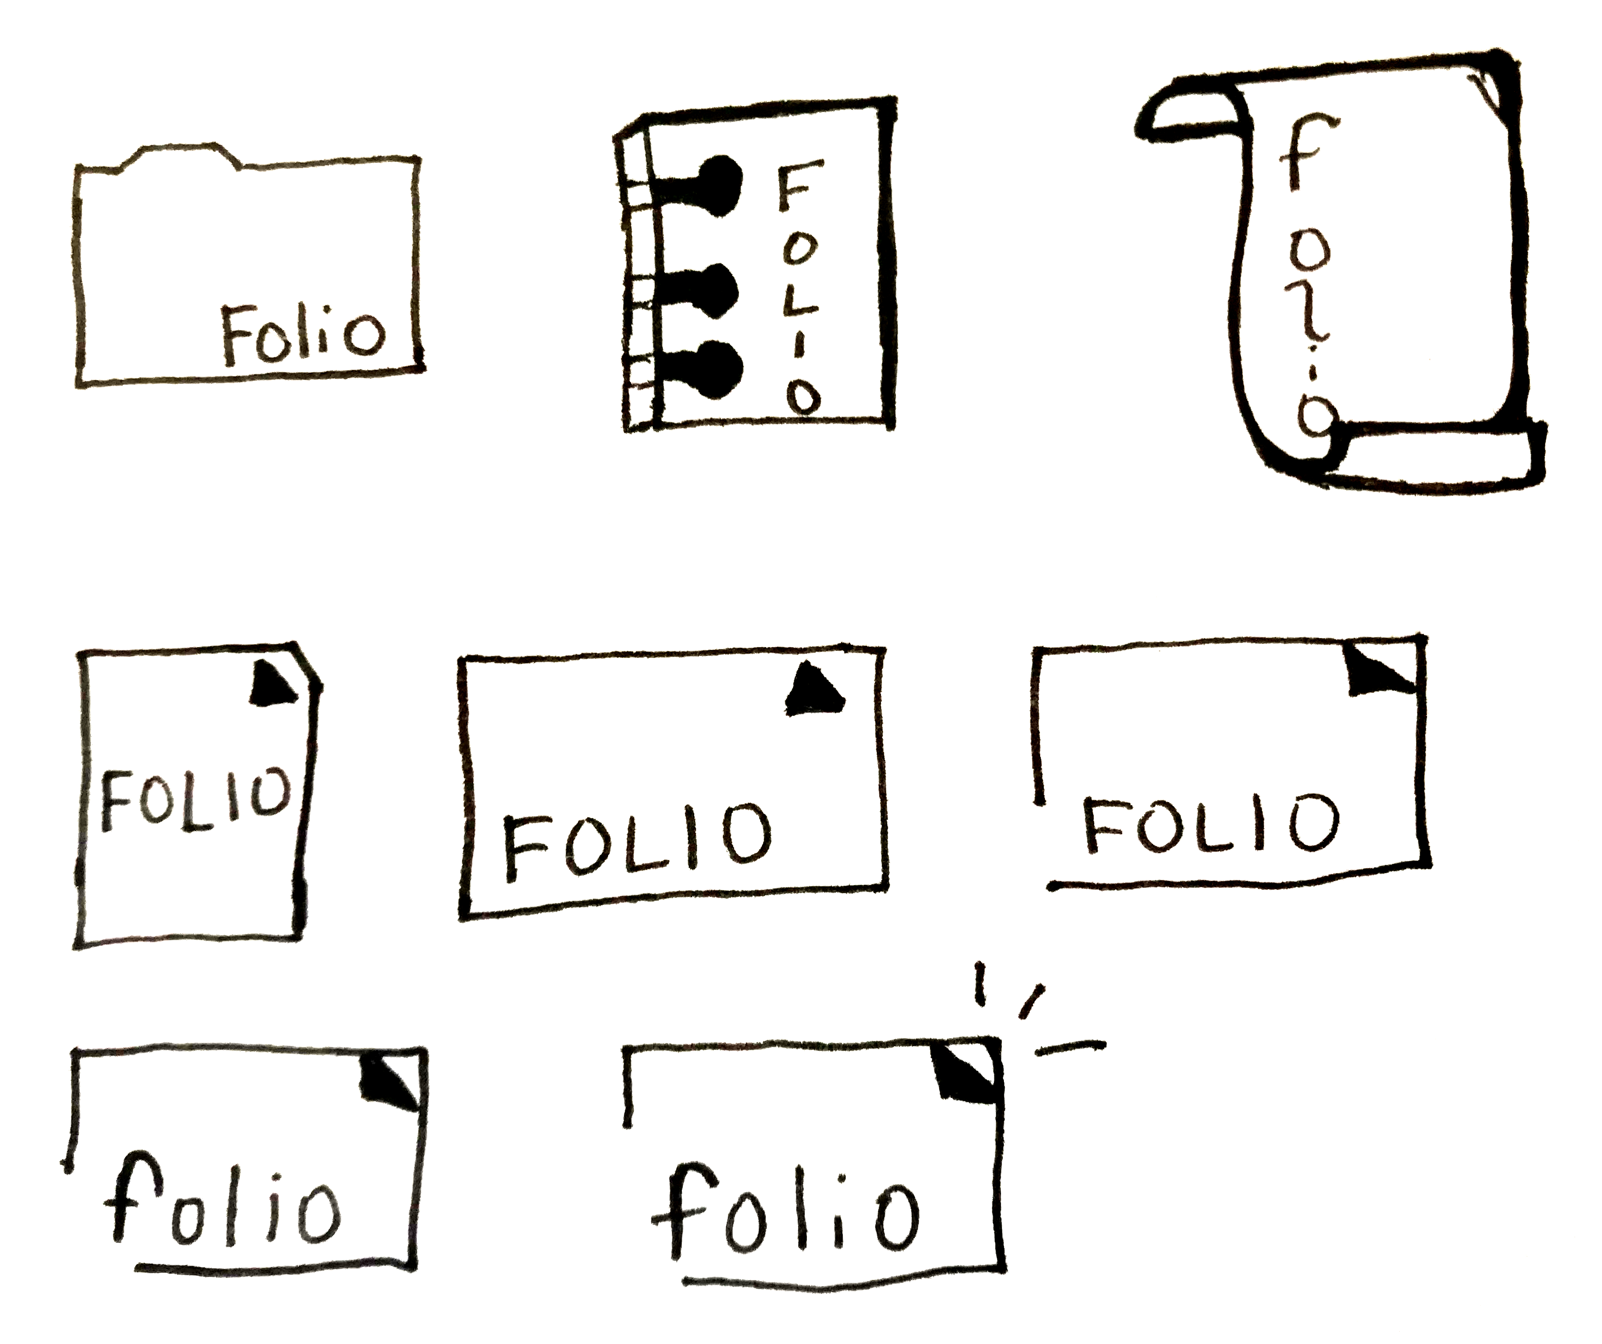 Folio
FOLIO
folio
FOLIO
FOLIO
FOLIO
folio
folio